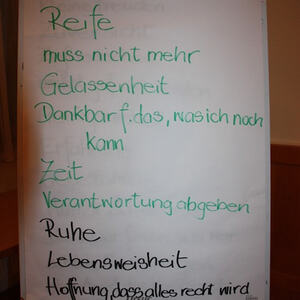 Reife
muss nicht mehr
Gelassenheit
Dankbar f. das, was ich noch
kann
Zeit
Verantwortung abgeben
Ruhe
Lebensweisheit
Hoffnung, dass alles recht wird